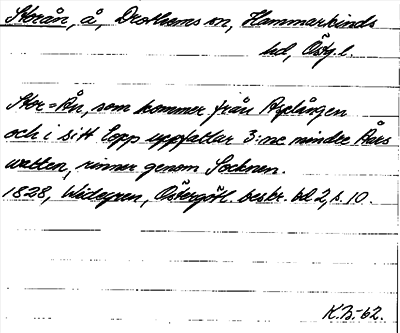 Storån, å, Drothems sn, Hammarkinds
hd, Östg.l.
Stor=Ån, som kommer från Asplången
och i sitt lopp uppfattar 3:ne mindre Åars
watten, rinner genom Socknen.
1828, Widegren, Östergötl. beskr. bd 2, s. 10.
K.B-62.